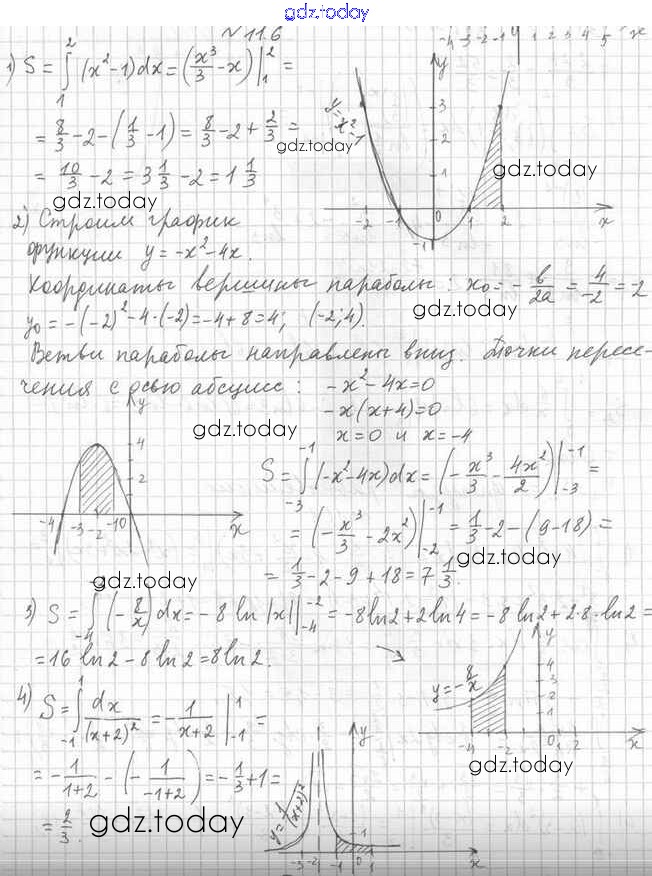 gdz.today
№ 11.6
-4 -3 -2 -1 0 1 2 3 4 5 x
1) S = ∫₁² (x²-1)dx = (x³/3 - x)|₁² =
= 8/3 - 2 - (1/3 - 1) = 8/3 - 2 + 2/3 =
gdz.today
= 10/3 - 2 = 3 1/3 - 2 = 1 1/3
gdz.today
y = x² - 1
y
3
2
1
-2 -1 0 1 2 x
-1
gdz.today
2) Строим график
функции y = -x² - 4x.
Координаты вершины параболы: x₀ = - b/2a = 4/-2 = -2
gdz.today
y₀ = -(-2)² - 4·(-2) = -4 + 8 = 4; (-2; 4).
Ветви параболы направлены вниз. Точки пересе-
чения с осью абсцисс: -x² - 4x = 0
-x(x+4) = 0
gdz.today
x = 0 и x = -4
y
4
2
-4 -3 -2 -1 0 x
S = ∫₋₃⁻¹ (-x²-4x)dx = (-x³/3 - 4x²/2)|₋₃⁻¹ =
= (-x³/3 - 2x²)|₋₂⁻¹ = 1/3 - 2 - (9-18) =
gdz.today
= 1/3 - 2 - 9 + 18 = 7 1/3.
gdz.today
3) S = ∫₋₄⁻² (-8/x)dx = -8 ln|x||₋₄⁻² = -8 ln2 + 2 ln4 = -8 ln2 + 2·8·ln2 =
= 16 ln2 - 8 ln2 = 8 ln2.
y = -8/x
y
4
3
2
1
-4 -2 0 1 x
gdz.today
4) S = ∫₋₁¹ dx/(x+2)² = -1/(x+2)|₋₁¹ =
= -1/(1+2) - (-1/(-1+2)) = -1/3 + 1 =
= 2/3.
gdz.today
y = 1/(x+2)²
y
1
-3 -2 -1 0 1 x